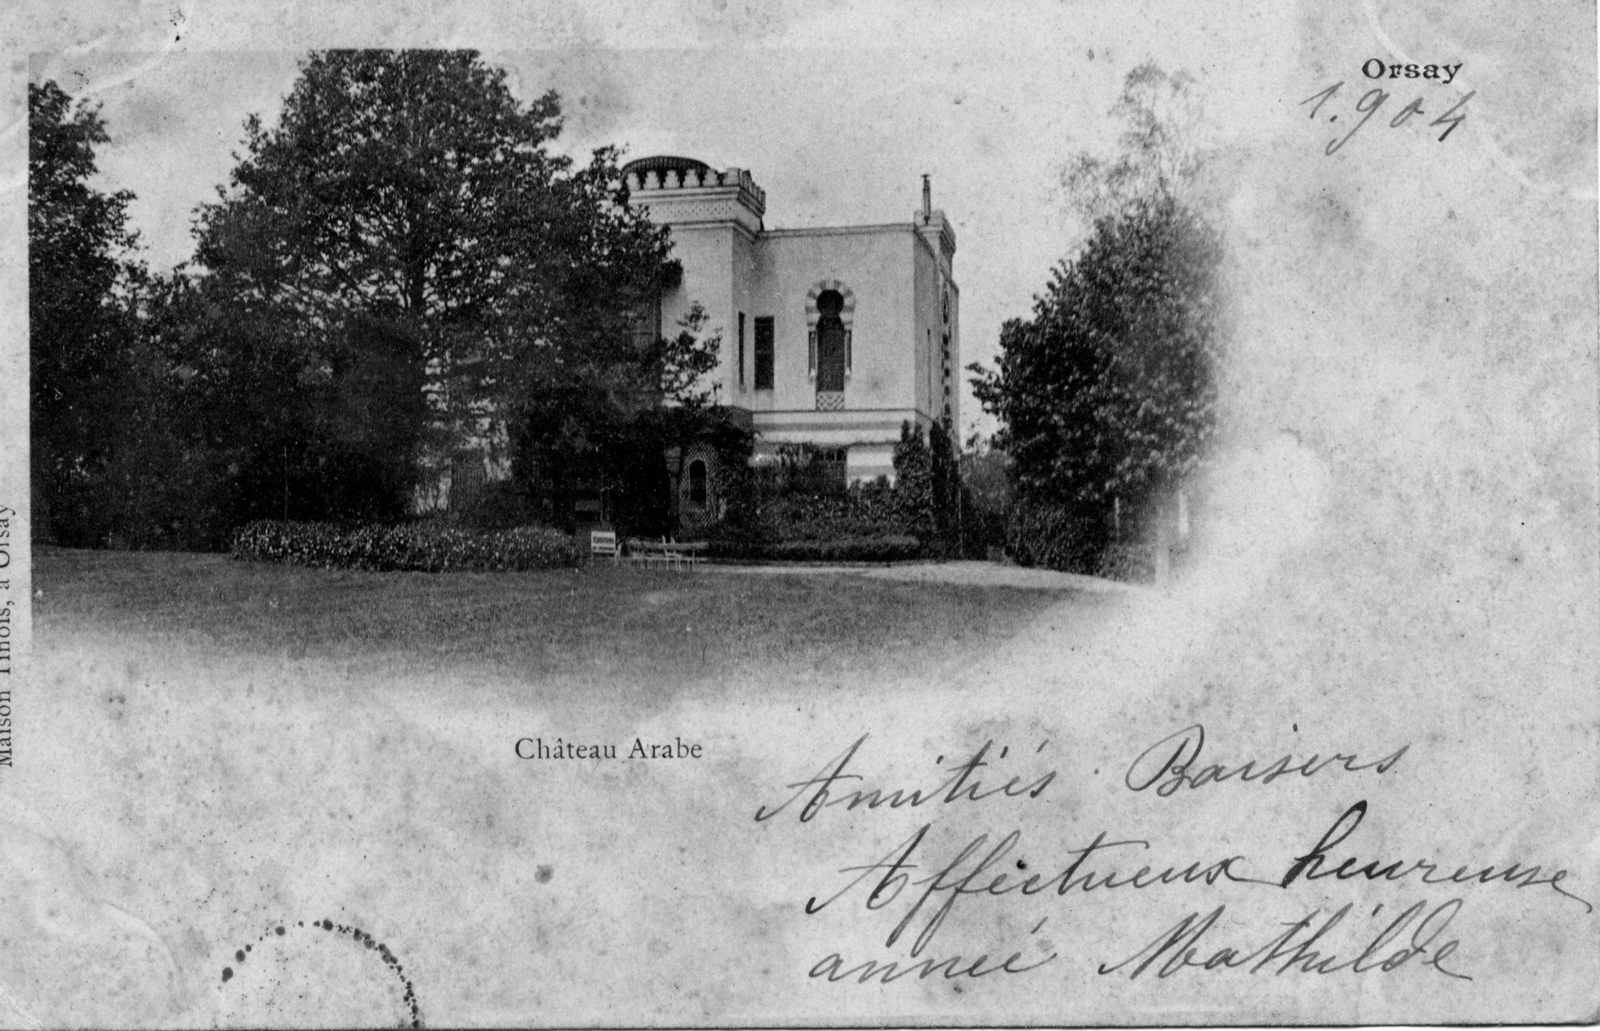 Orsay
1.904
Maison Tinois, à Orsay
Château Arabe
Amitiés Baisers
Affectueux heureuse
année Mathilde